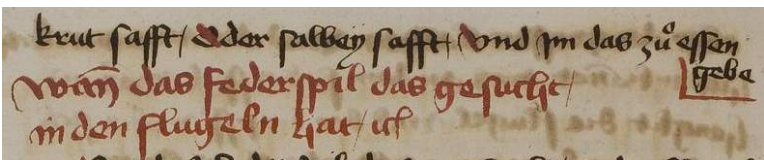 krut safft / oder salbey safft / vnd jm das zů essen
gebe
wan̄ das federspil das gesucht /
in den flugeln hat / ꝛcͣ